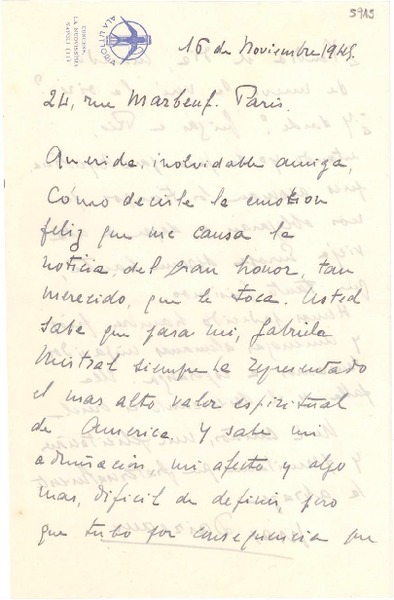 5915
ALA LITTORIA
16 de Noviembre 1945.
24, rue Marbeuf. Paris.
Querida, inolvidable amiga,
Cómo decirle la emoción
feliz que me causa la
noticia, del gran honor, tan
merecido, que le toca. Usted
sabe que para mi, Gabriela
Mistral siempre ha representado
el mas alto valor espiritual
de America. Y sabe mi
admiración, mi afecto y algo
mas, dificil de definir, pero
que tubo por consequencia que